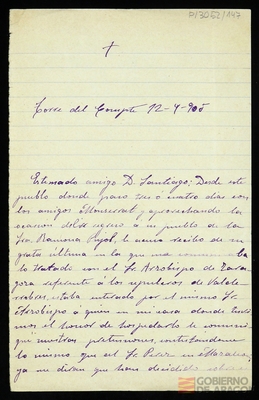 P/3062/147
+
Torre del Compte 12-4-905
Estimado amigo D. Santiago: Desde este
pueblo donde paso tres o cuatro dias con
los amigos Monserrat y aprovechando la
ocasion del regreso a su pueblo de la
Sra. Ramona Pujol, le acuso recibo de su
grata última en la que me comunica
lo tratado con el Sr. Arzobispo de Zara-
goza referente á los sepulcros de Valde-
rrobres, estaba enterado por el mismo Sr.
Arzobispo á quien en mi casa donde tuvi-
mos el honor de hospedarle le comuni-
qué nuestras pretensiones, contestandome
lo mismo que al Sr. Perez en
ya me diran que han decidido
GOBIERNO
DE ARAGON